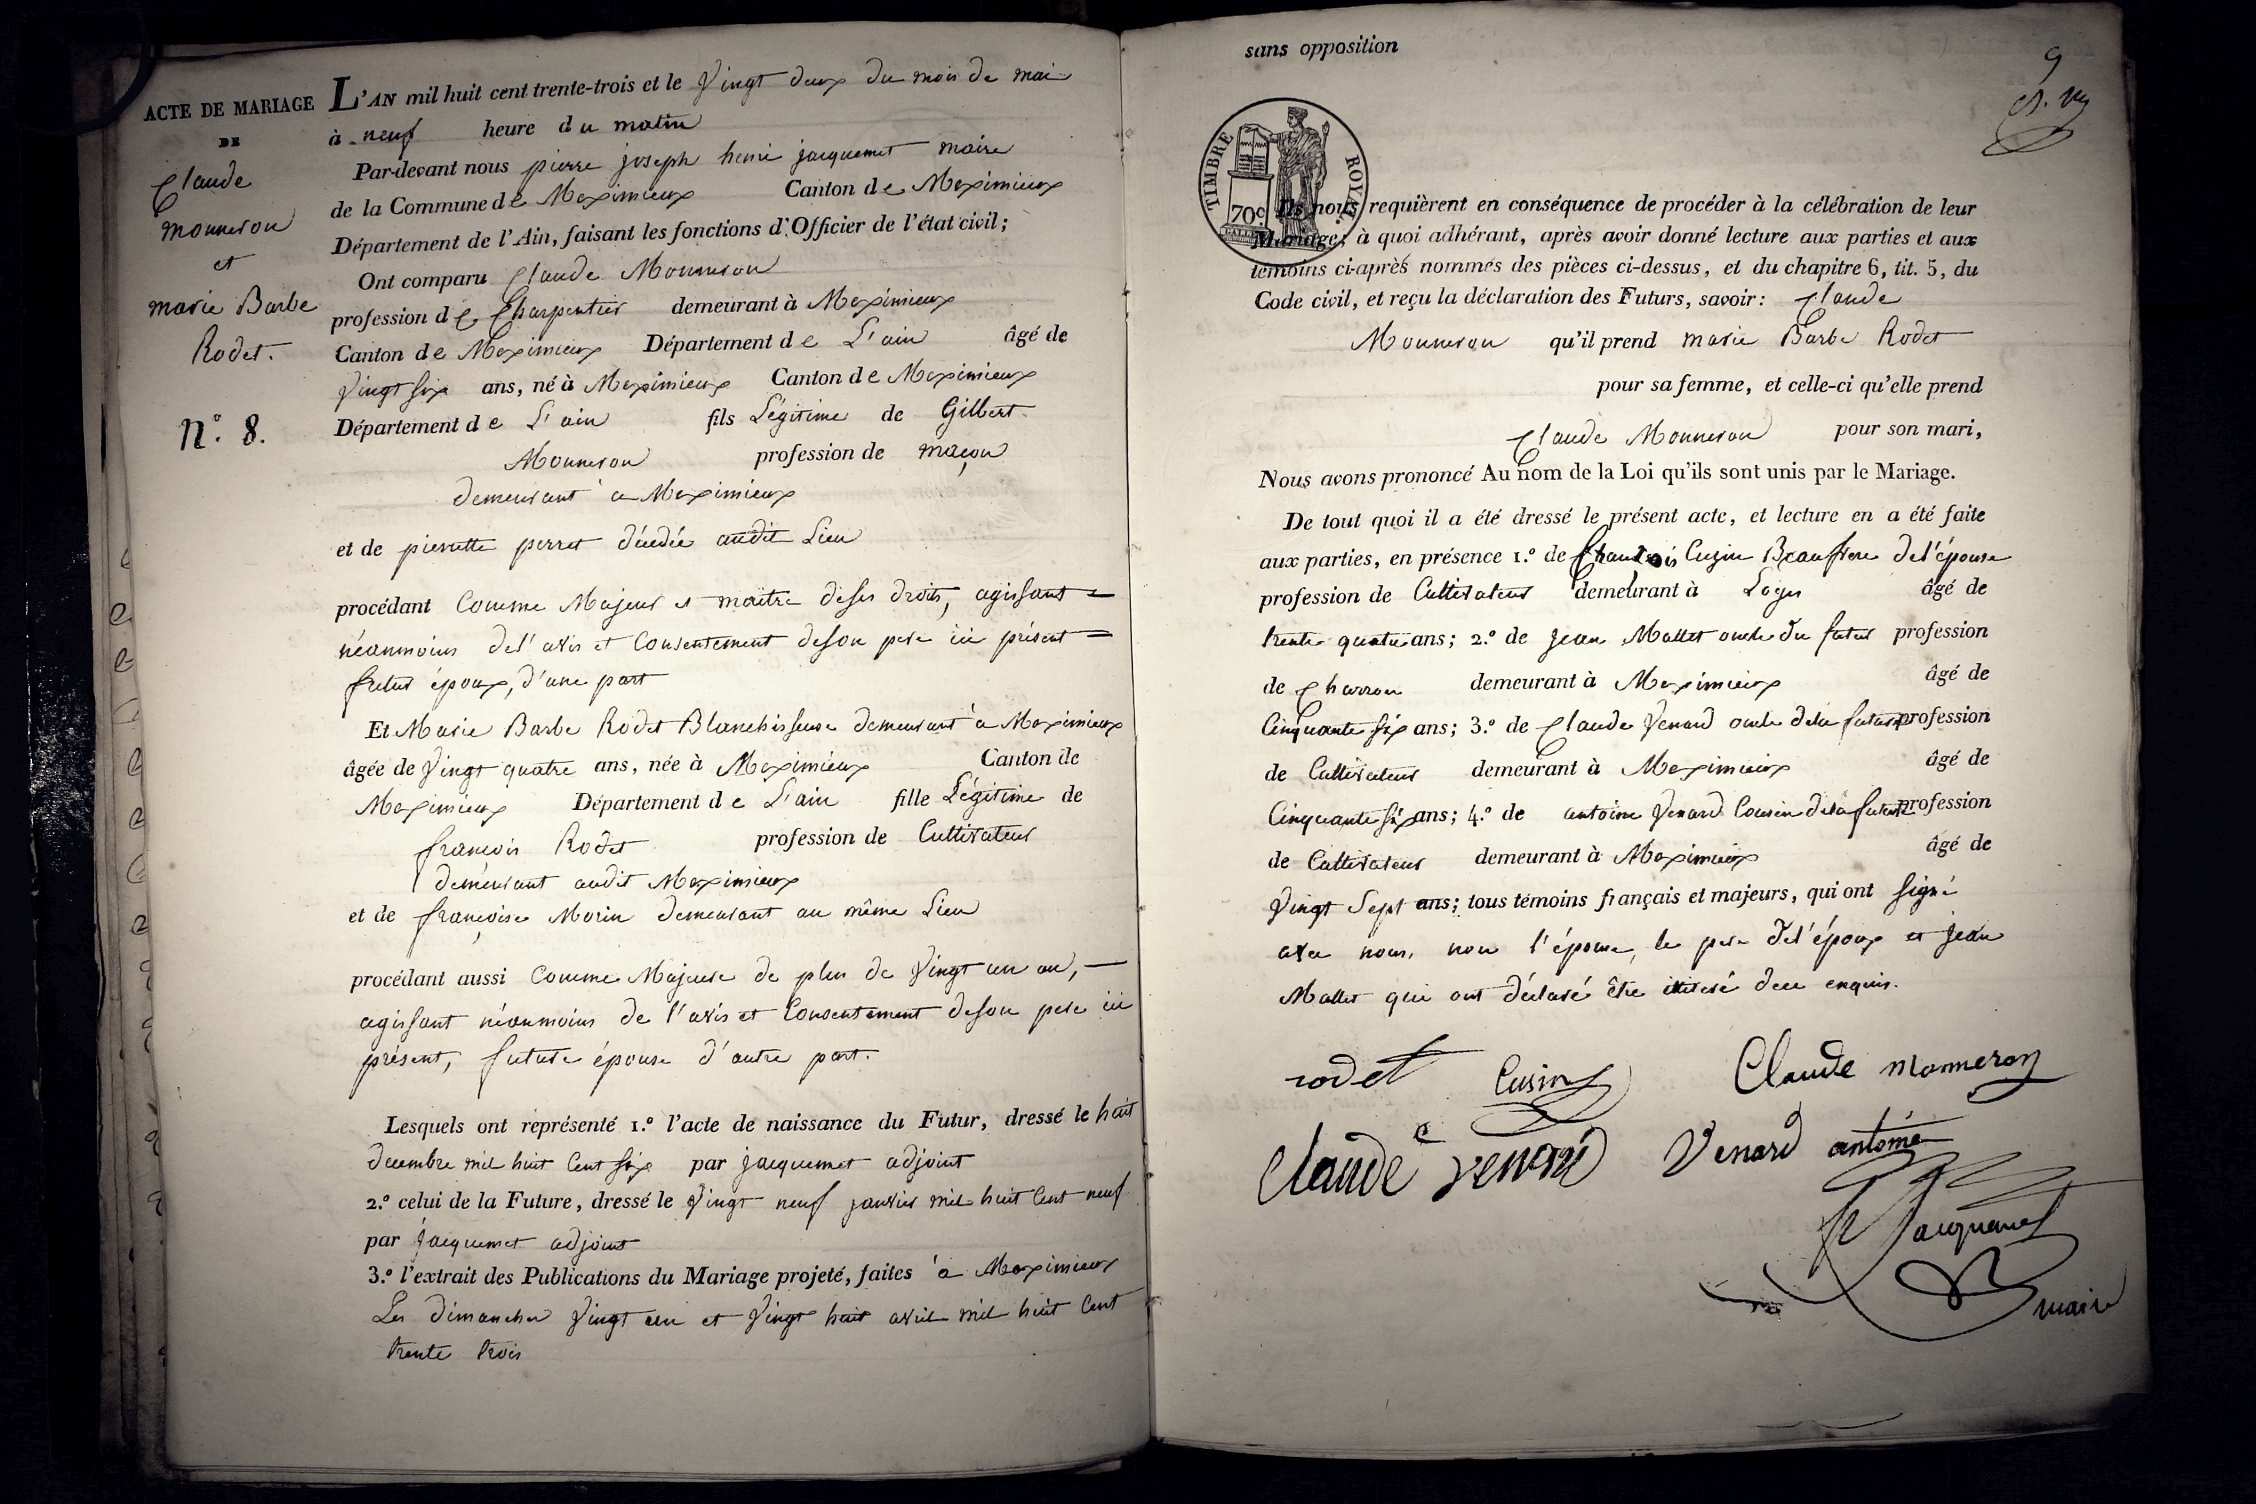 ACTE DE MARIAGE
DE
Claude
Monneron
et
marie Barbe
Rodet.
N.° 8.
L'AN mil huit cent trente-trois et le Vingt deux du mois de mai
à neuf heure du matin
Par-devant nous pierre joseph henri jacquemet maire
de la Commune de Meximieux Canton de Meximieux
Département de l'Ain, faisant les fonctions d'Officier de l'état civil;
Ont comparu Claude Monneron
profession de Charpentier demeurant à Meximieux
Canton de Meximieux Département de L'ain âgé de
Vingt six ans, né à Meximieux Canton de Meximieux
Département de L'ain fils Légitime de Gilbert
Monneron profession de maçon
demeurant à Meximieux
et de pierrette perret décédée audit Lieu
procédant Comme Majeur et maitre de ses droits, agissant
néanmoins de l'avis et Consentement de son pere ici présent
futur époux, d'une part
Et Marie Barbe Rodet Blanchisseuse demeurant à Meximieux
âgée de Vingt quatre ans, née à Meximieux Canton de
Meximieux Département de L'ain fille Légitime de
françois Rodet profession de Cultivateur
demeurant audit Meximieux
et de françoise Morin demeurant au même Lieu
procédant aussi Comme Majeure de plus de Vingt un an,
agissant néanmoins de l'avis et Consentement de son pere ici
présent, future épouse d'autre part.
Lesquels ont représenté 1.° l'acte de naissance du Futur, dressé le huit
decembre mil huit Cent six par jacquemet adjoint
2.° celui de la Future, dressé le Vingt neuf janvier mil huit Cent neuf
par jacquemet adjoint
3.° l'extrait des Publications du Mariage projeté, faites à Meximieux
Les dimanches Vingt un et Vingt huit avril mil huit Cent
trente trois
sans opposition
9
TIMBRE ROYAL
70c
Ils nous requièrent en conséquence de procéder à la célébration de leur
Mariage; à quoi adhérant, après avoir donné lecture aux parties et aux
témoins ci-après nommés des pièces ci-dessus, et du chapitre 6, tit. 5, du
Code civil, et reçu la déclaration des Futurs, savoir: Claude
Monneron qu'il prend marie Barbe Rodet
pour sa femme, et celle-ci qu'elle prend
Claude Monneron pour son mari,
Nous avons prononcé Au nom de la Loi qu'ils sont unis par le Mariage.
De tout quoi il a été dressé le présent acte, et lecture en a été faite
aux parties, en présence 1.° de françois Cuzin Beaufrere de l'épouse
profession de Cultivateur demeurant à Loyes âgé de
trente quatre ans; 2.° de jean Mallet oncle du futur profession
de Charron demeurant à Meximieux âgé de
Cinquante six ans; 3.° de Claude Venard oncle dela future profession
de Cultivateur demeurant à Meximieux âgé de
Cinquante six ans; 4.° de antoine Venard Cousin dela future profession
de Cultivateur demeurant à Meximieux âgé de
Vingt Sept ans; tous témoins français et majeurs, qui ont signé
avec nous, non l'épouse, le pere de l'époux et jean
Mallet qui ont déclaré être illiteré de ce enquis.
rodet Cusin Claude Monneron
Claude Venard Venard antome
Jacquemet
maire